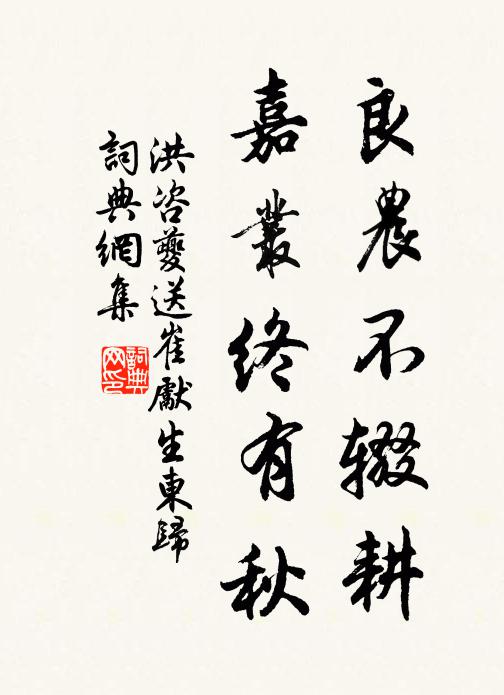 良農不辍耕
嘉叢終有秋
洪咨夔送崔獻生東歸
詞典網集
詞典网印